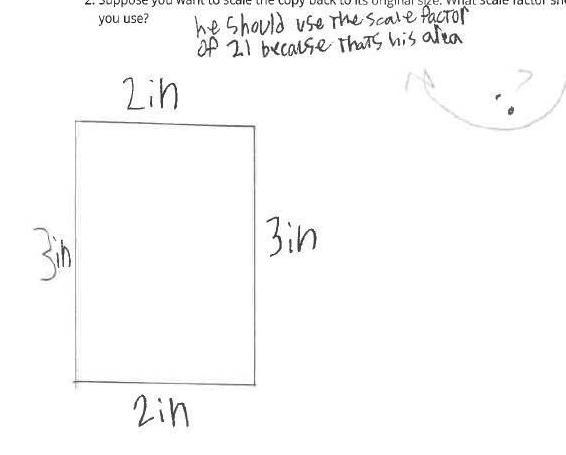 2. Suppose you want to scale the copy back to its original size. What scale factor
you use?
he should use the scale factor
of 21 because thats his area
2in
3in
3in
2in